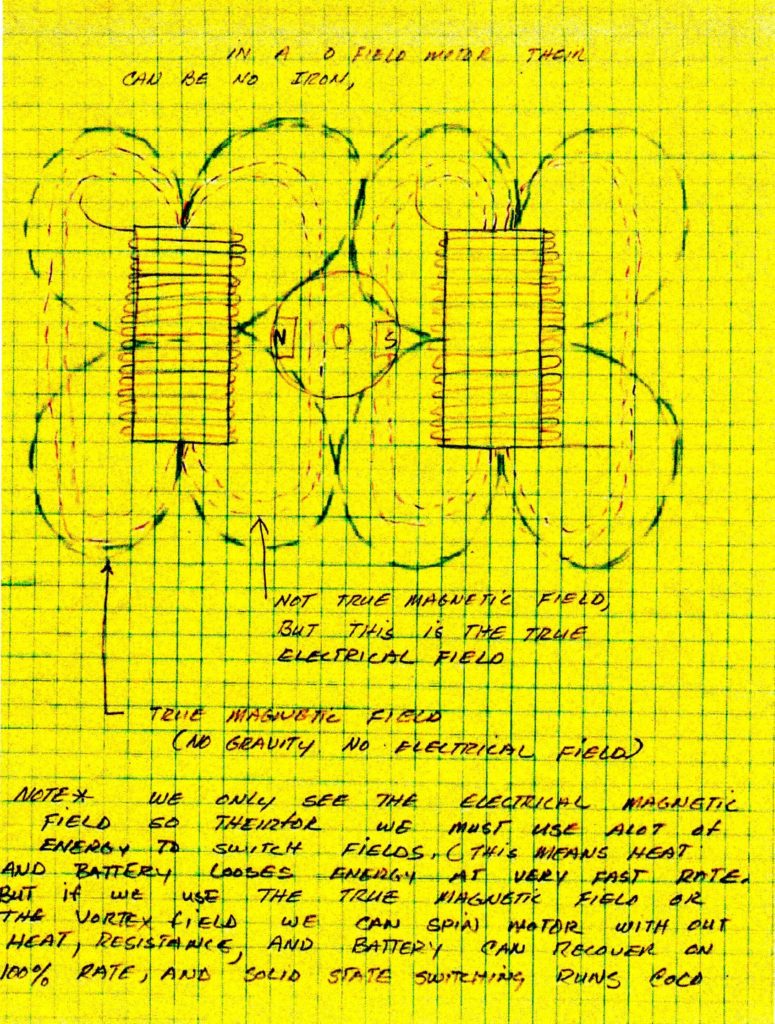 IN A O FIELD MOTOR THEIR
CAN BE NO IRON,
N O S
NOT TRUE MAGNETIC FIELD,
BUT THIS IS THE TRUE
ELECTRICAL FIELD
TRUE MAGNETIC FIELD
(NO GRAVITY NO ELECTRICAL FIELD)
NOTE* WE ONLY SEE THE ELECTRICAL MAGNETIC
FIELD SO THEIRFOR WE MUST USE ALOT OF
ENERGY TO SWITCH FIELDS. (THIS MEANS HEAT
AND BATTERY LOOSES ENERGY AT VERY FAST RATE.
BUT IF WE USE THE TRUE MAGNETIC FIELD OR
THE VORTEX FIELD WE CAN SPIN MOTOR WITH OUT
HEAT, RESISTANCE, AND BATTERY CAN RECOVER ON
100% RATE, AND SOLID STATE SWITCHING RUNS COLD